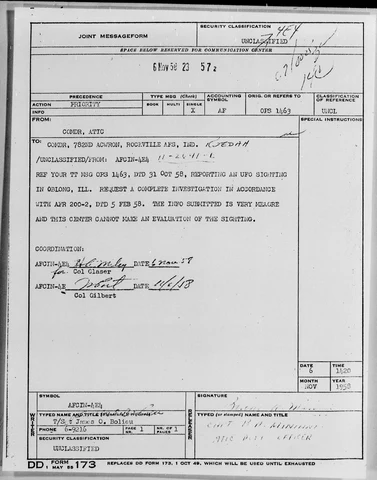 JOINT MESSAGEFORM
SECURITY CLASSIFICATION
UNCLASSIFIED
SPACE BELOW RESERVED FOR COMMUNICATION CENTER
6 Nov 58 23 57z
PRECEDENCE
TYPE MSG (Check)
ACCOUNTING SYMBOL
ORIG. OR REFERS TO
CLASSIFICATION OF REFERENCE
ACTION PRIORITY
BOOK MULTI SINGLE
X AF OPS 1463 UNCL
INFO
FROM:
SPECIAL INSTRUCTIONS
COMDR, ATIC
TO: COMDR, 782ND ACWRON, ROCKVILLE AFS, IND. RJEDAH
/UNCLASSIFIED/FROM: AFCIN-4E4
REF YOUR TT MSG OPS 1463, DTD 31 OCT 58, REPORTING AN UFO SIGHTING
IN OBLONG, ILL. REQUEST A COMPLETE INVESTIGATION IN ACCORDANCE
WITH AFR 200-2, DTD 5 FEB 58. THE INFO SUBMITTED IS VERY MEAGRE
AND THIS CENTER CANNOT MAKE AN EVALUATION OF THE SIGHTING.
COORDINATION:
AFCIN-4E4 DATE 6 Nov 58
for Col Glaser
AFCIN-4E DATE
Col Gilbert
DATE TIME
6 1420
MONTH YEAR
NOV 1958
SYMBOL
AFCIN-4E4
SIGNATURE
TYPED NAME AND TITLE
T/Sgt James O. Bolieu
TYPED (or stamped) NAME AND TITLE
PHONE 6-9216
PAGE NR. 1
NR. OF PAGES 1
SECURITY CLASSIFICATION
UNCLASSIFIED
DD FORM 1 MAY 55 173 REPLACES DD FORM 173, 1 OCT 49, WHICH WILL BE USED UNTIL EXHAUSTED